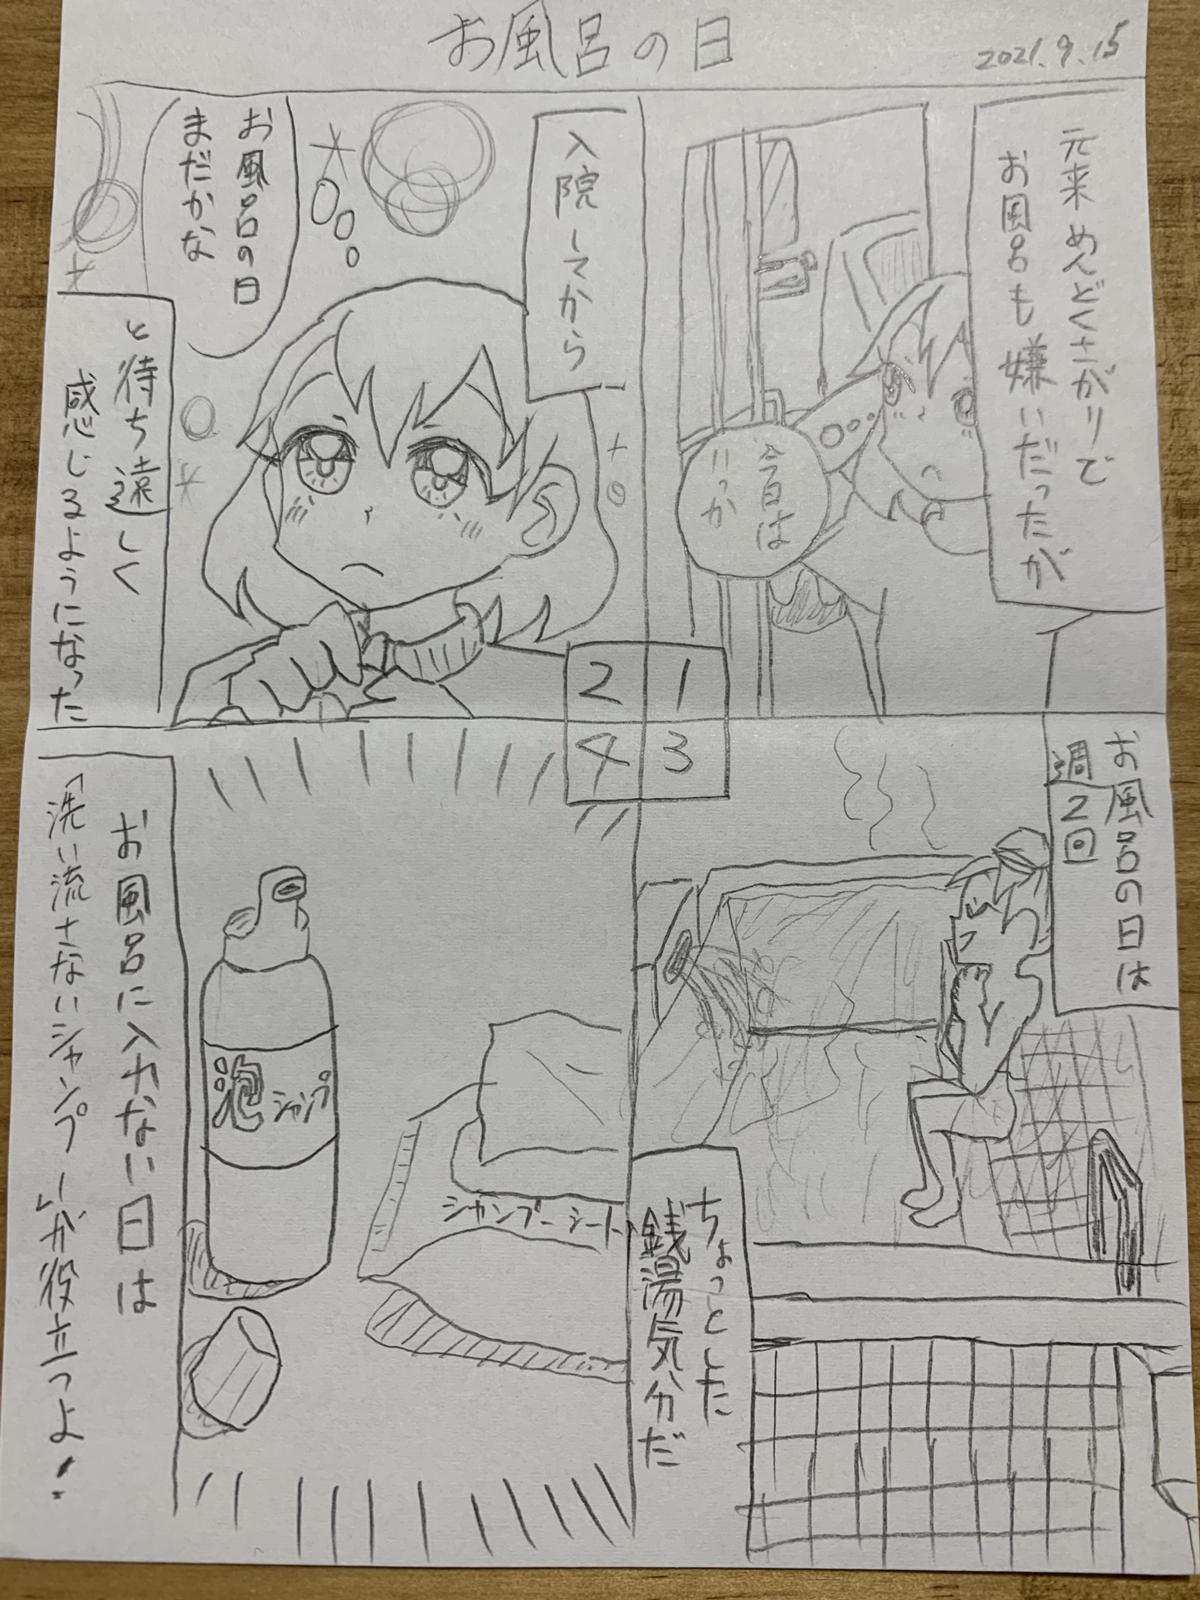 お風呂の日
2021.9.15
元来めんどくさがりで
お風呂も嫌いだったが
今日は
いっか
入院してから
お風呂の日
まだかな
と待ち遠しく
感じるようになった
1
2
3
4
お風呂の日は
週2回
ちょっとした
銭湯気分だ
泡シャンプ
シャンプーシート
お風呂に入れない日は
「洗い流さないシャンプー」が役立つよ!